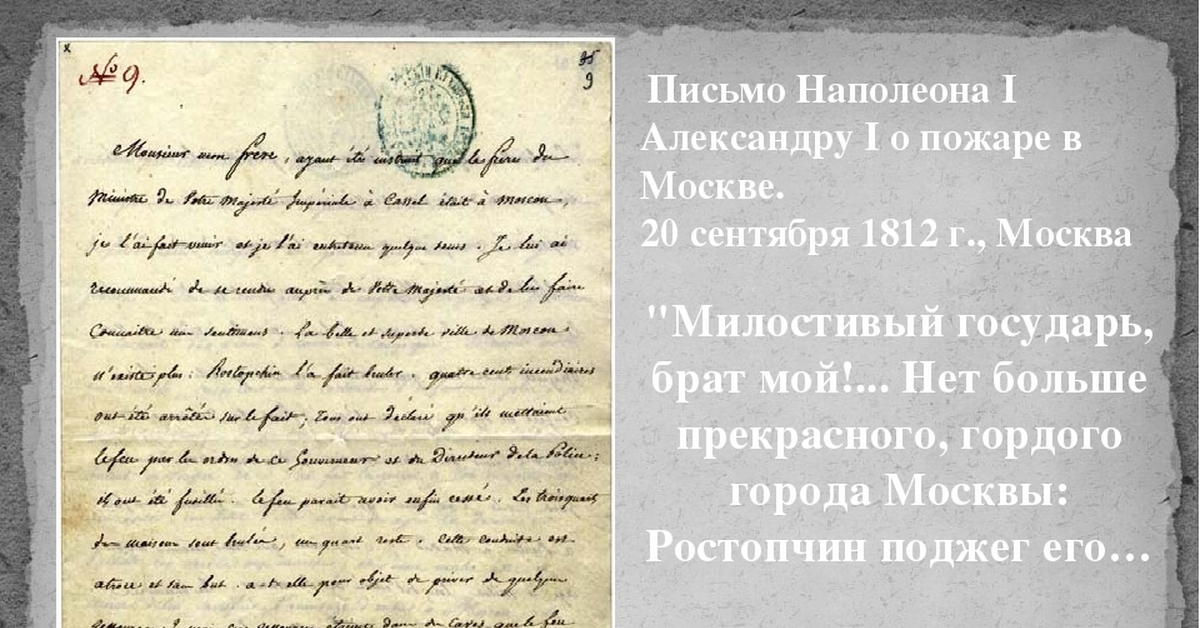 № 9.
9
Monsieur mon frère, ayant été instruit que le frère du
Ministre de Votre Majesté Impériale à Cassel était à Moscou,
je l'ai fait venir et je l'ai entretenu quelque tems. Je lui ai
recommandé de se rendre auprès de Votre Majesté et de lui faire
connaitre mes sentimens. La belle et superbe ville de Moscou
n'existe plus: Rostopchin l'a fait bruler. quatre cent incendiaires
ont été arrêtés sur le fait; tous ont déclaré qu'ils mettaient
le feu par les ordres de ce Gouverneur et du Directeur de la Police:
ils ont été fusillés. le feu parait avoir enfin cessé. Les trois quarts
des maisons sont brulées, un quart reste. Cette conduite est
atroce et sans but. a-t-elle pour objet de priver de quelques
ressources? mais ces ressources étaient dans des caves que le feu
Письмо Наполеона I
Александру I о пожаре в
Москве.
20 сентября 1812 г., Москва
"Милостивый государь,
брат мой!... Нет больше
прекрасного, гордого
города Москвы:
Ростопчин поджег его…